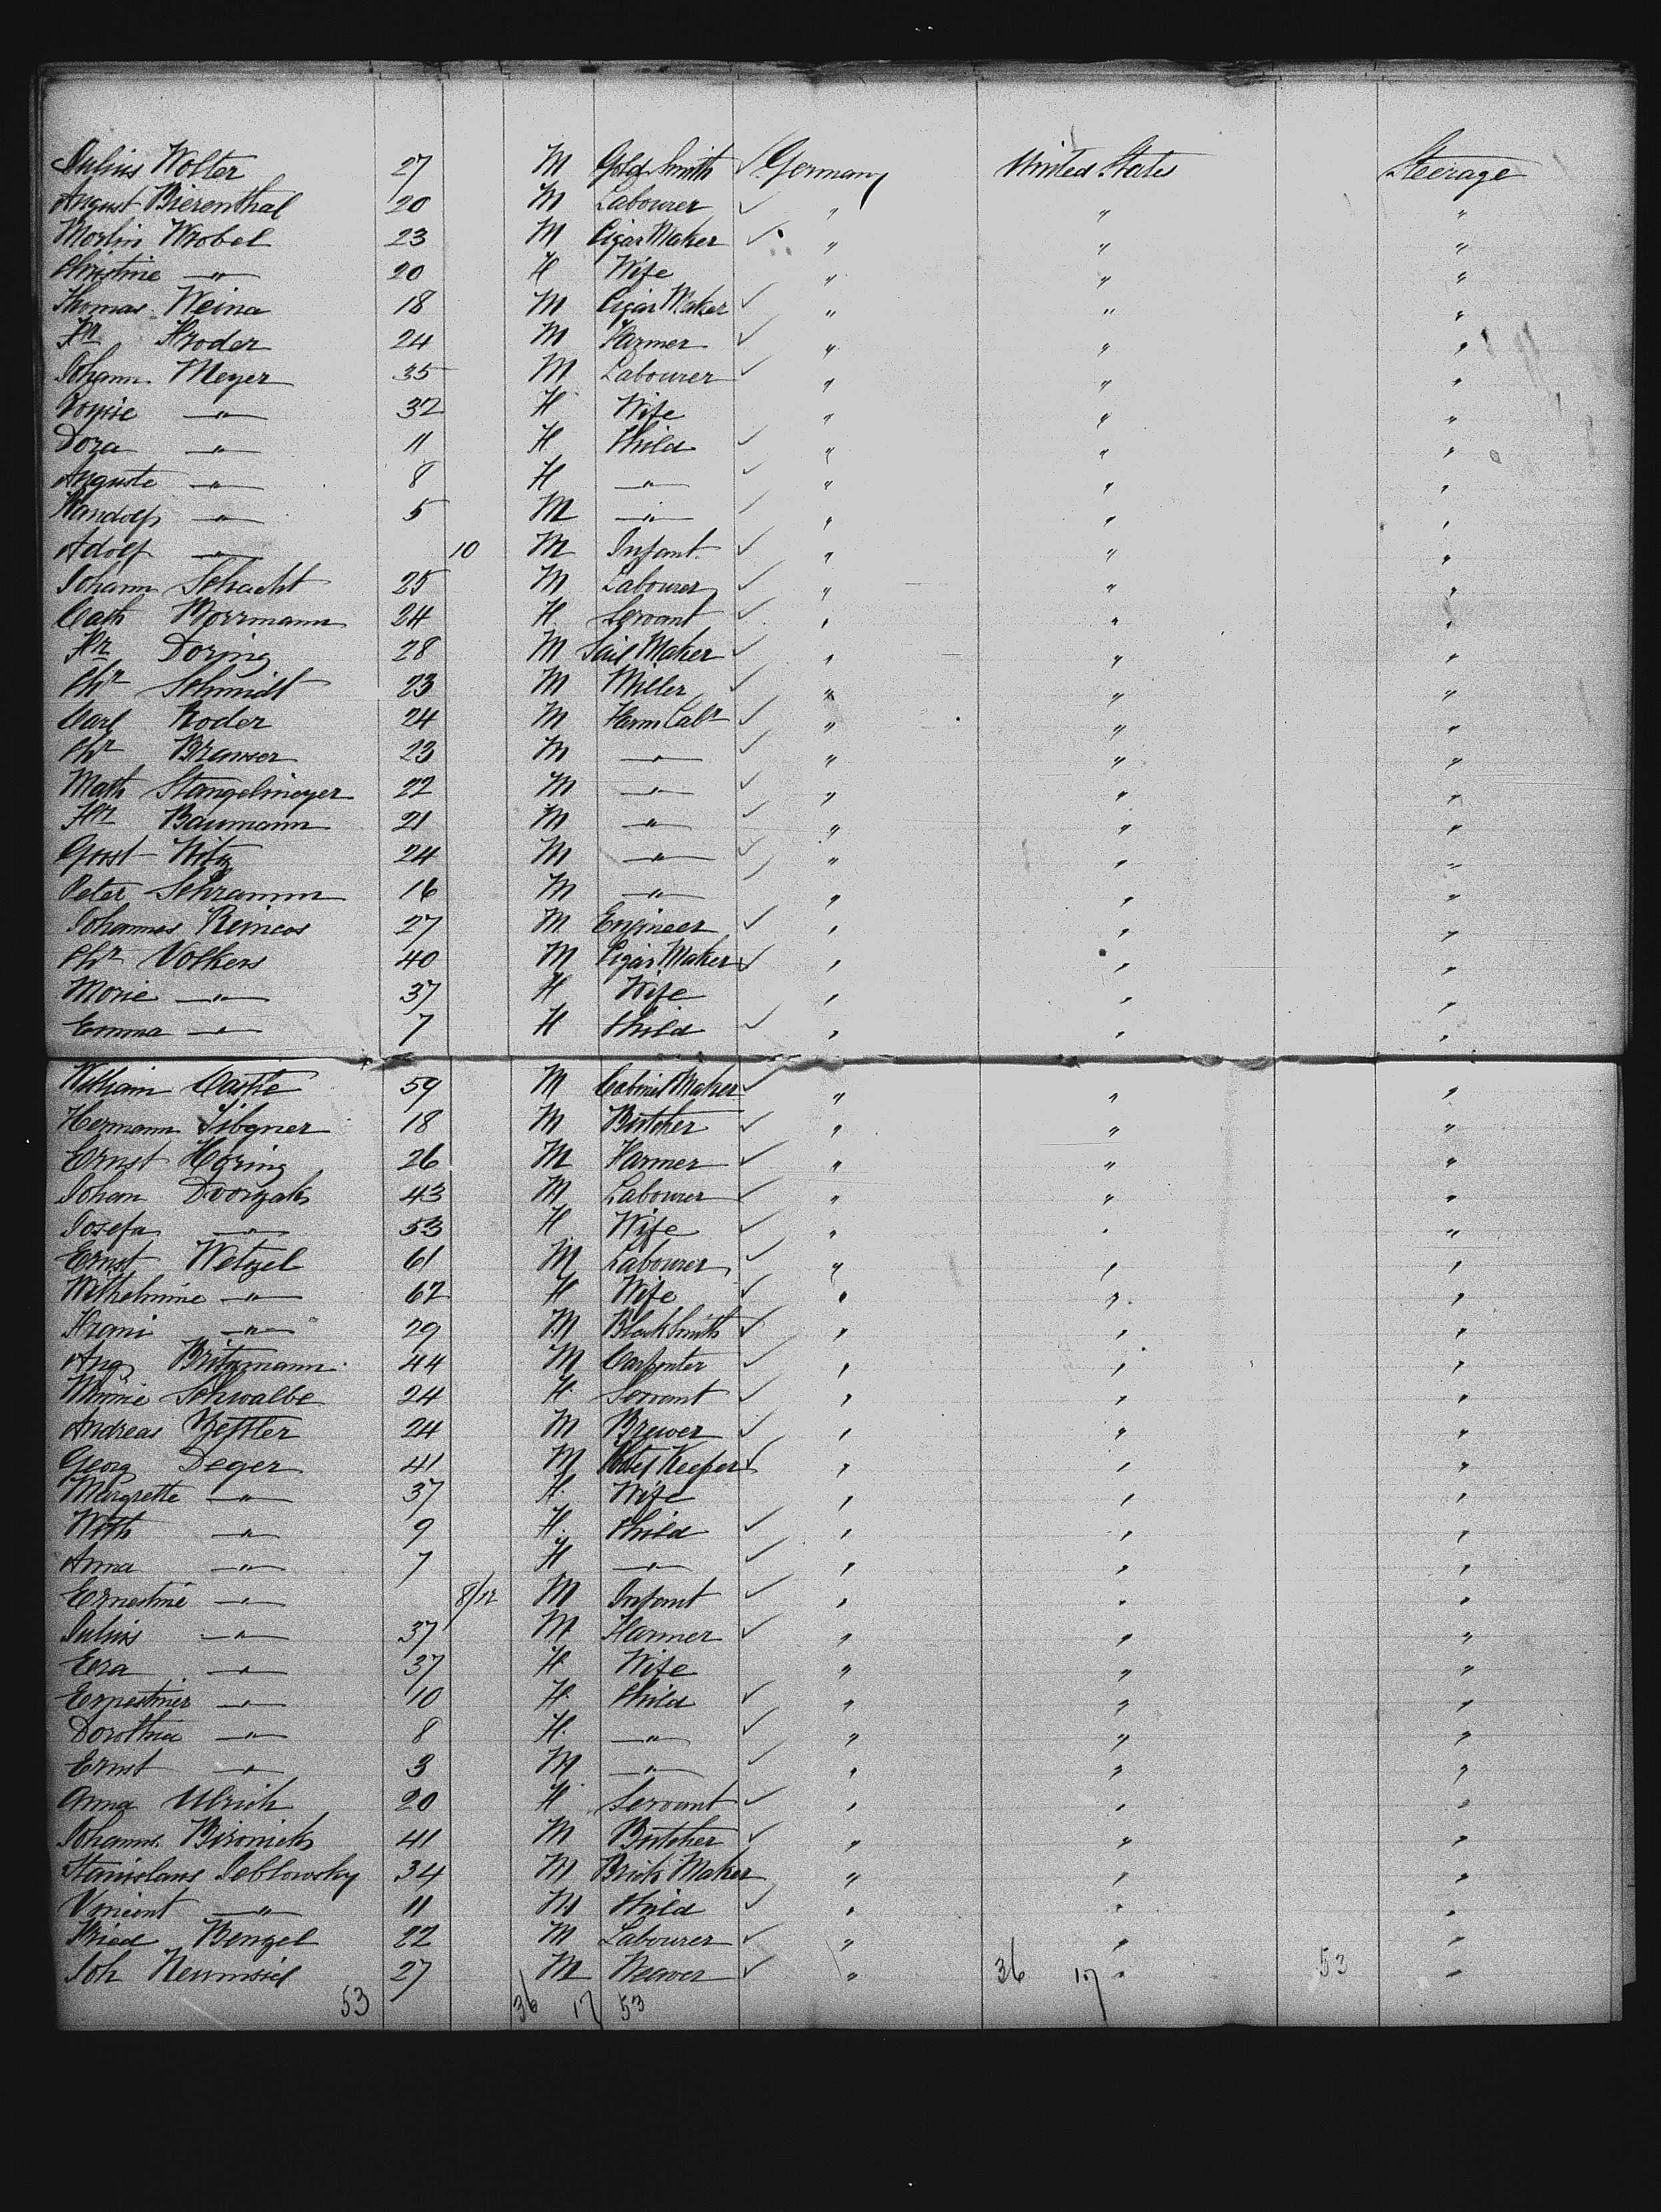 Julius Wolter 27 M Gold Smith ✓ Germany United States Steerage
August Bierenthal 20 M Labourer ✓ " " "
Martin Wrobel 23 M Cigar Maker ✓ " " "
Christine —"— 20 F Wife " " "
Thomas Weina 18 M Cigar Maker ✓ " " "
Fr Kroder 24 M Farmer ✓ " " "
Johann Meyer 35 M Labourer ✓ " " "
Louise —"— 32 F Wife " " "
Dora —"— 11 F Child ✓ " " "
Auguste —"— 8 F —"— ✓ " " "
Randolf —"— 5 M —"— ✓ " " "
Adolf —"— 10 M Infant ✓ " " "
Johann Schacht 25 M Labourer ✓ " " "
Cath Borrmann 24 F Servant ✓ " " "
Fr Doring 28 M Sail Maker ✓ " " "
Chr Schmidt 23 M Miller ✓ " " "
Carl Roder 24 M Farm Labr ✓ " " "
Chr Brauser 23 M —"— ✓ " " "
Math Stangelmeyer 22 M —"— ✓ " " "
Fr Baumann 21 M —"— ✓ " " "
Witz 24 M —"— ✓ " " "
Peter Schramm 16 M —"— " " "
Johannes Reincos 27 M Engineer ✓ " " "
Chr Volkers 40 M Cigar Maker ✓ " " "
Marie —"— 37 F Wife " " "
Emma —"— 7 F Child ✓ " " "
William 59 M Cabinet Maker ✓ " " "
Hermann Sibgner 18 M Butcher ✓ " " "
Ernst Horing 26 M Farmer ✓ " " "
Johan Dvorzak 43 M Labourer ✓ " " "
Josefa —"— 53 F Wife ✓ " " "
Ernst Wetzel 61 M Labourer ✓ " " "
Wilhelmine —"— 62 F Wife ✓ " " "
Franz —"— 29 M Black Smith ✓ " " "
Aug Britzmann 44 M Carpenter ✓ " " "
Minnie Schwalbe 24 F Servant ✓ " " "
Andreas Zettler 24 M Brewer ✓ " " "
Georg Deger 41 M Hotel Keeper ✓ " " "
Margrette —"— 37 F Wife " " "
Wilh —"— 9 F Child ✓ " " "
Anna —"— 7 F —"— ✓ " " "
Ernestine —"— 8/12 M Infant ✓ " " "
Julius —"— 37 M Farmer ✓ " " "
Eva —"— 37 F Wife " " "
Ernestine —"— 10 F Child ✓ " " "
Dorothea —"— 8 F —"— ✓ " " "
Ernst —"— 3 M —"— ✓ " " "
Anna Ulrich 20 F Servant ✓ " " "
Johann Bironick 41 M Butcher ✓ " " "
Stanislaus Jeblowsky 34 M Brick Maker " " "
Vincent —"— 11 M Child ✓ " " "
Fried Benzel 22 M Labourer ✓ " " "
Joh 27 M Weaver ✓ " 36 17 " 53 "
53 36 17 53